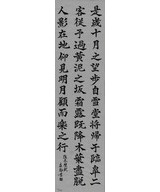 是歲十月之望步自雪堂將歸于臨皋二
客從予過黃泥之坂霜露既降木葉盡脫
人影在地仰見明月顧而樂之行